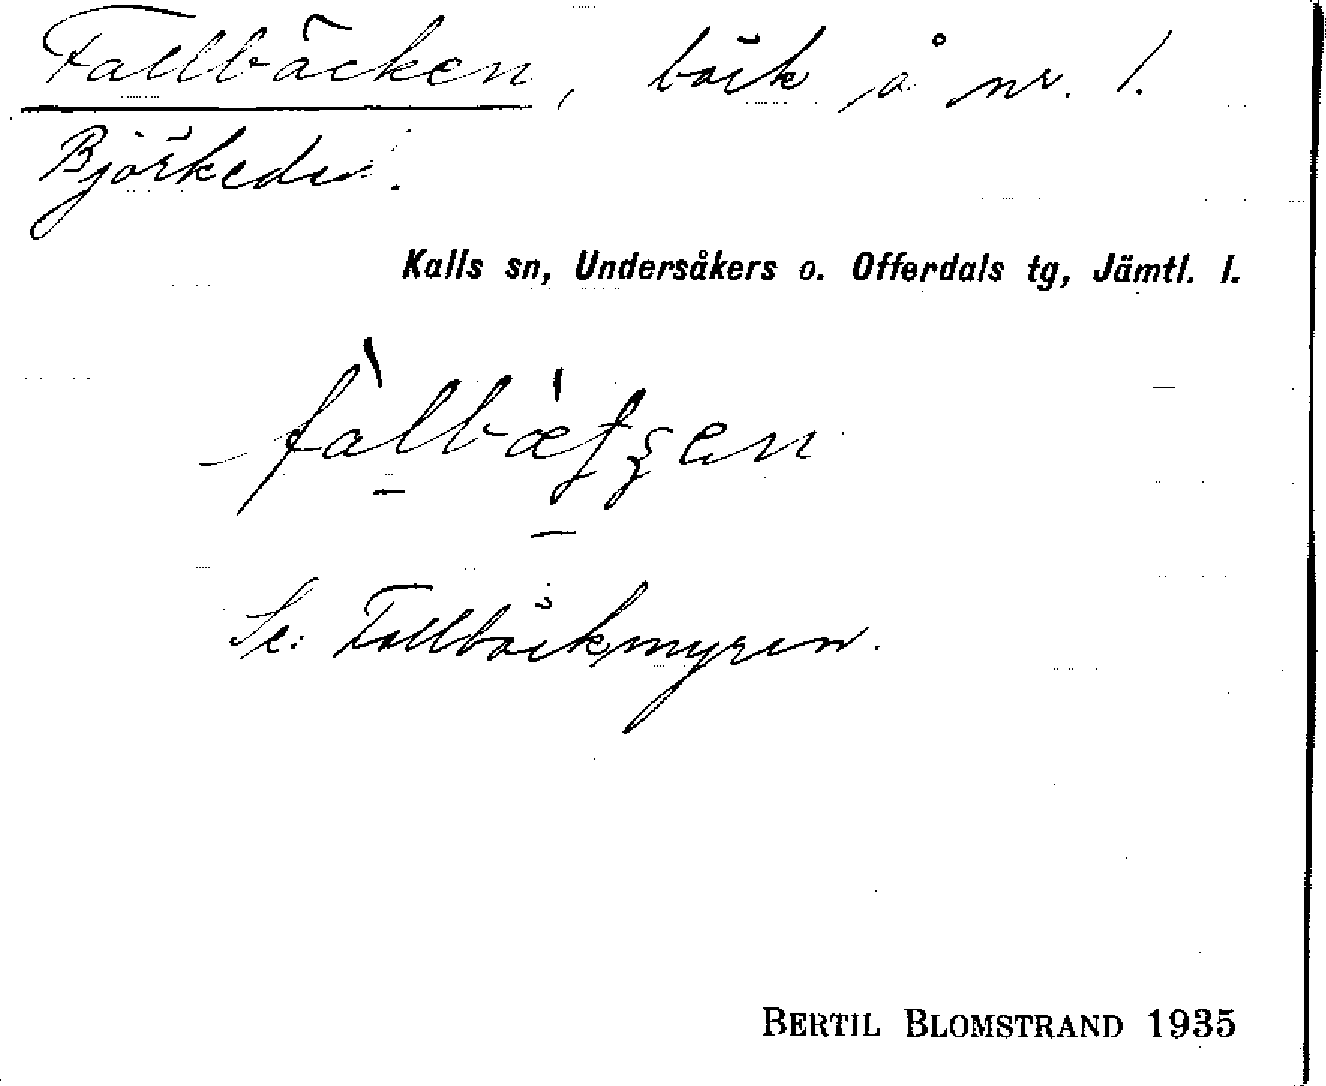 Fallbäcken, bäck å nr. 1.
Björkede.
Kalls sn, Undersåkers o. Offerdals tg, Jämtl. l.
Se: Fallbäckmyren.
BERTIL BLOMSTRAND 1935